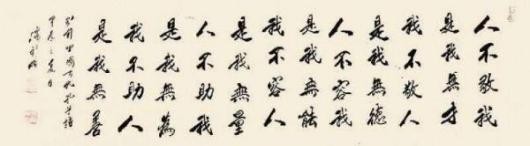 人不敬我
是我無才
我不敬人
是我無德
人不容我
是我無能
我不容人
是我無量
人不助我
是我無為
我不助人
是我無善
甲辰之夏日